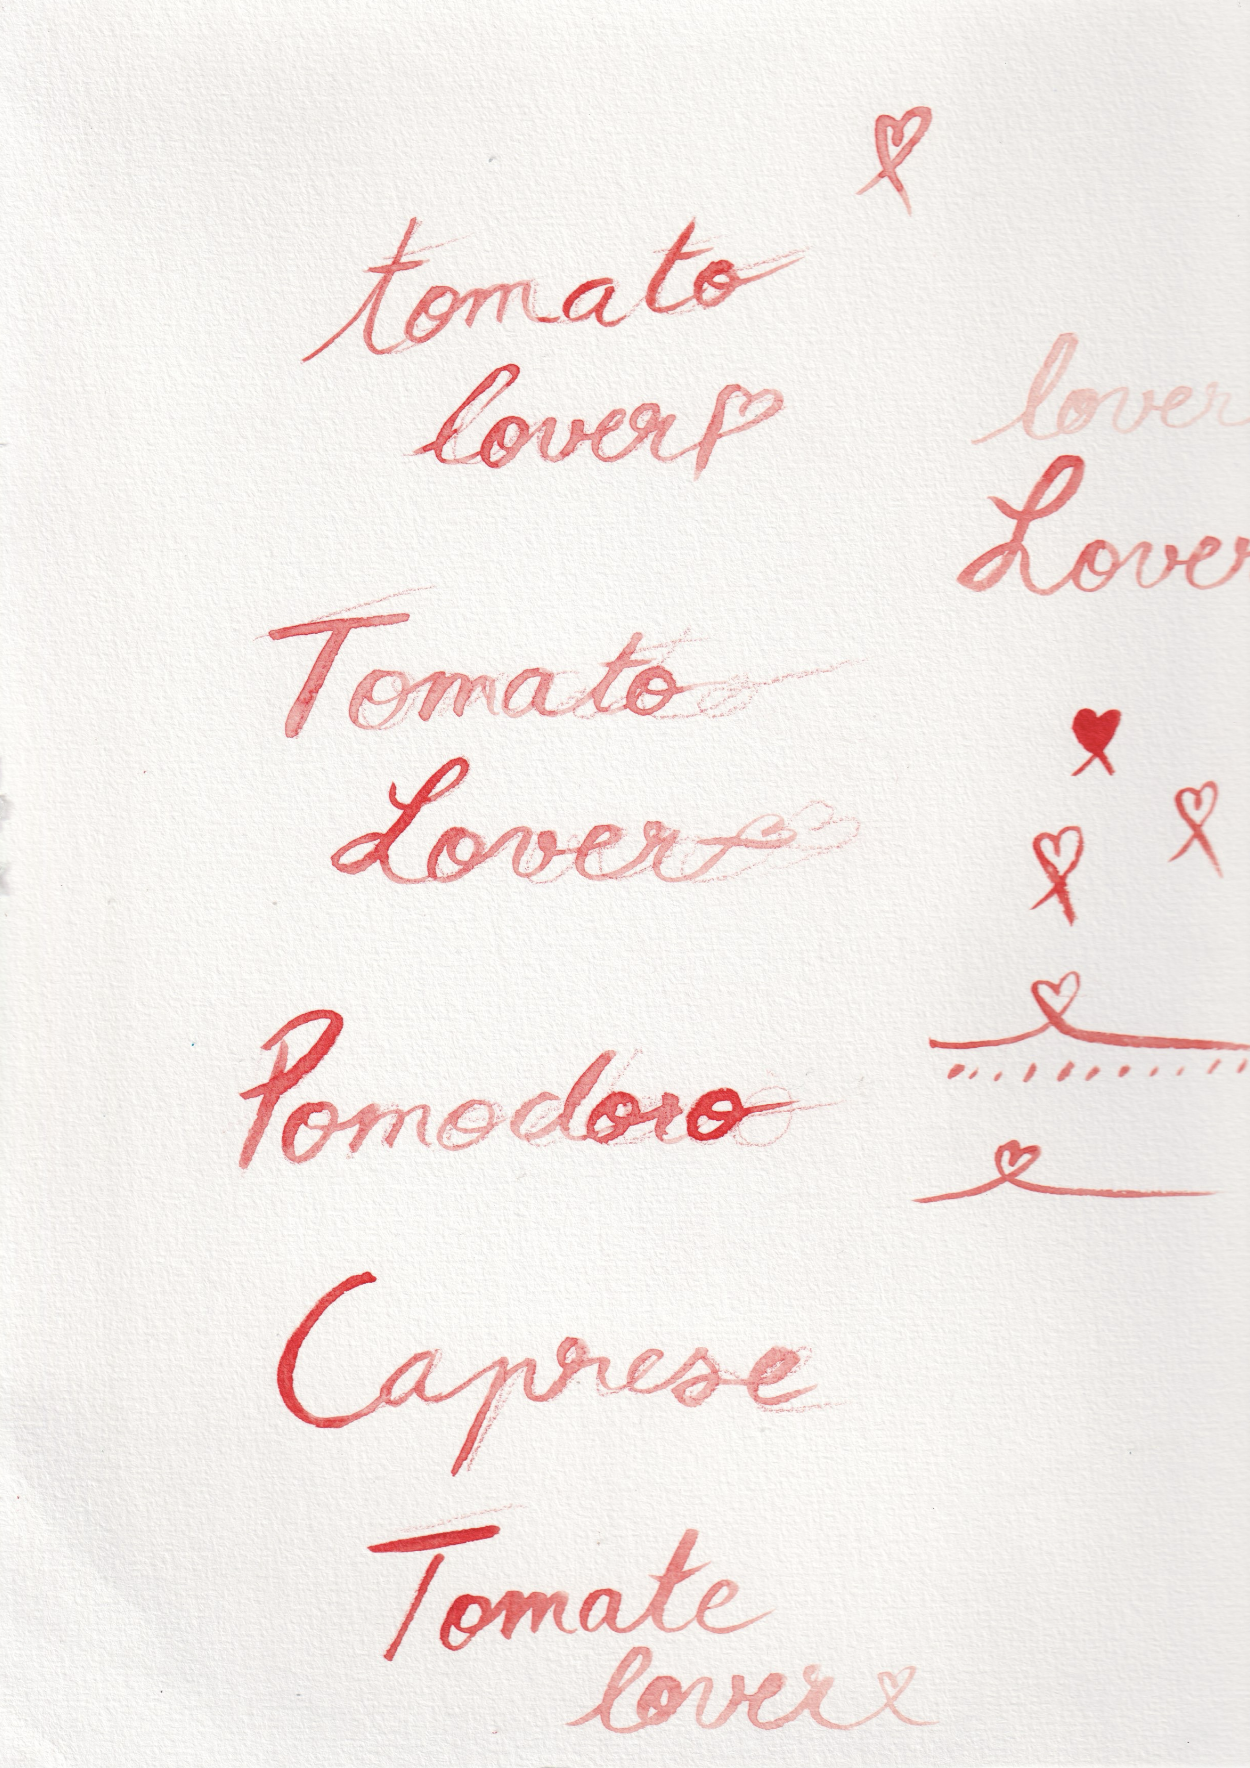 tomato
lover
lover
Lover
Tomato
Lover
Pomodoro
Caprese
Tomate
lover